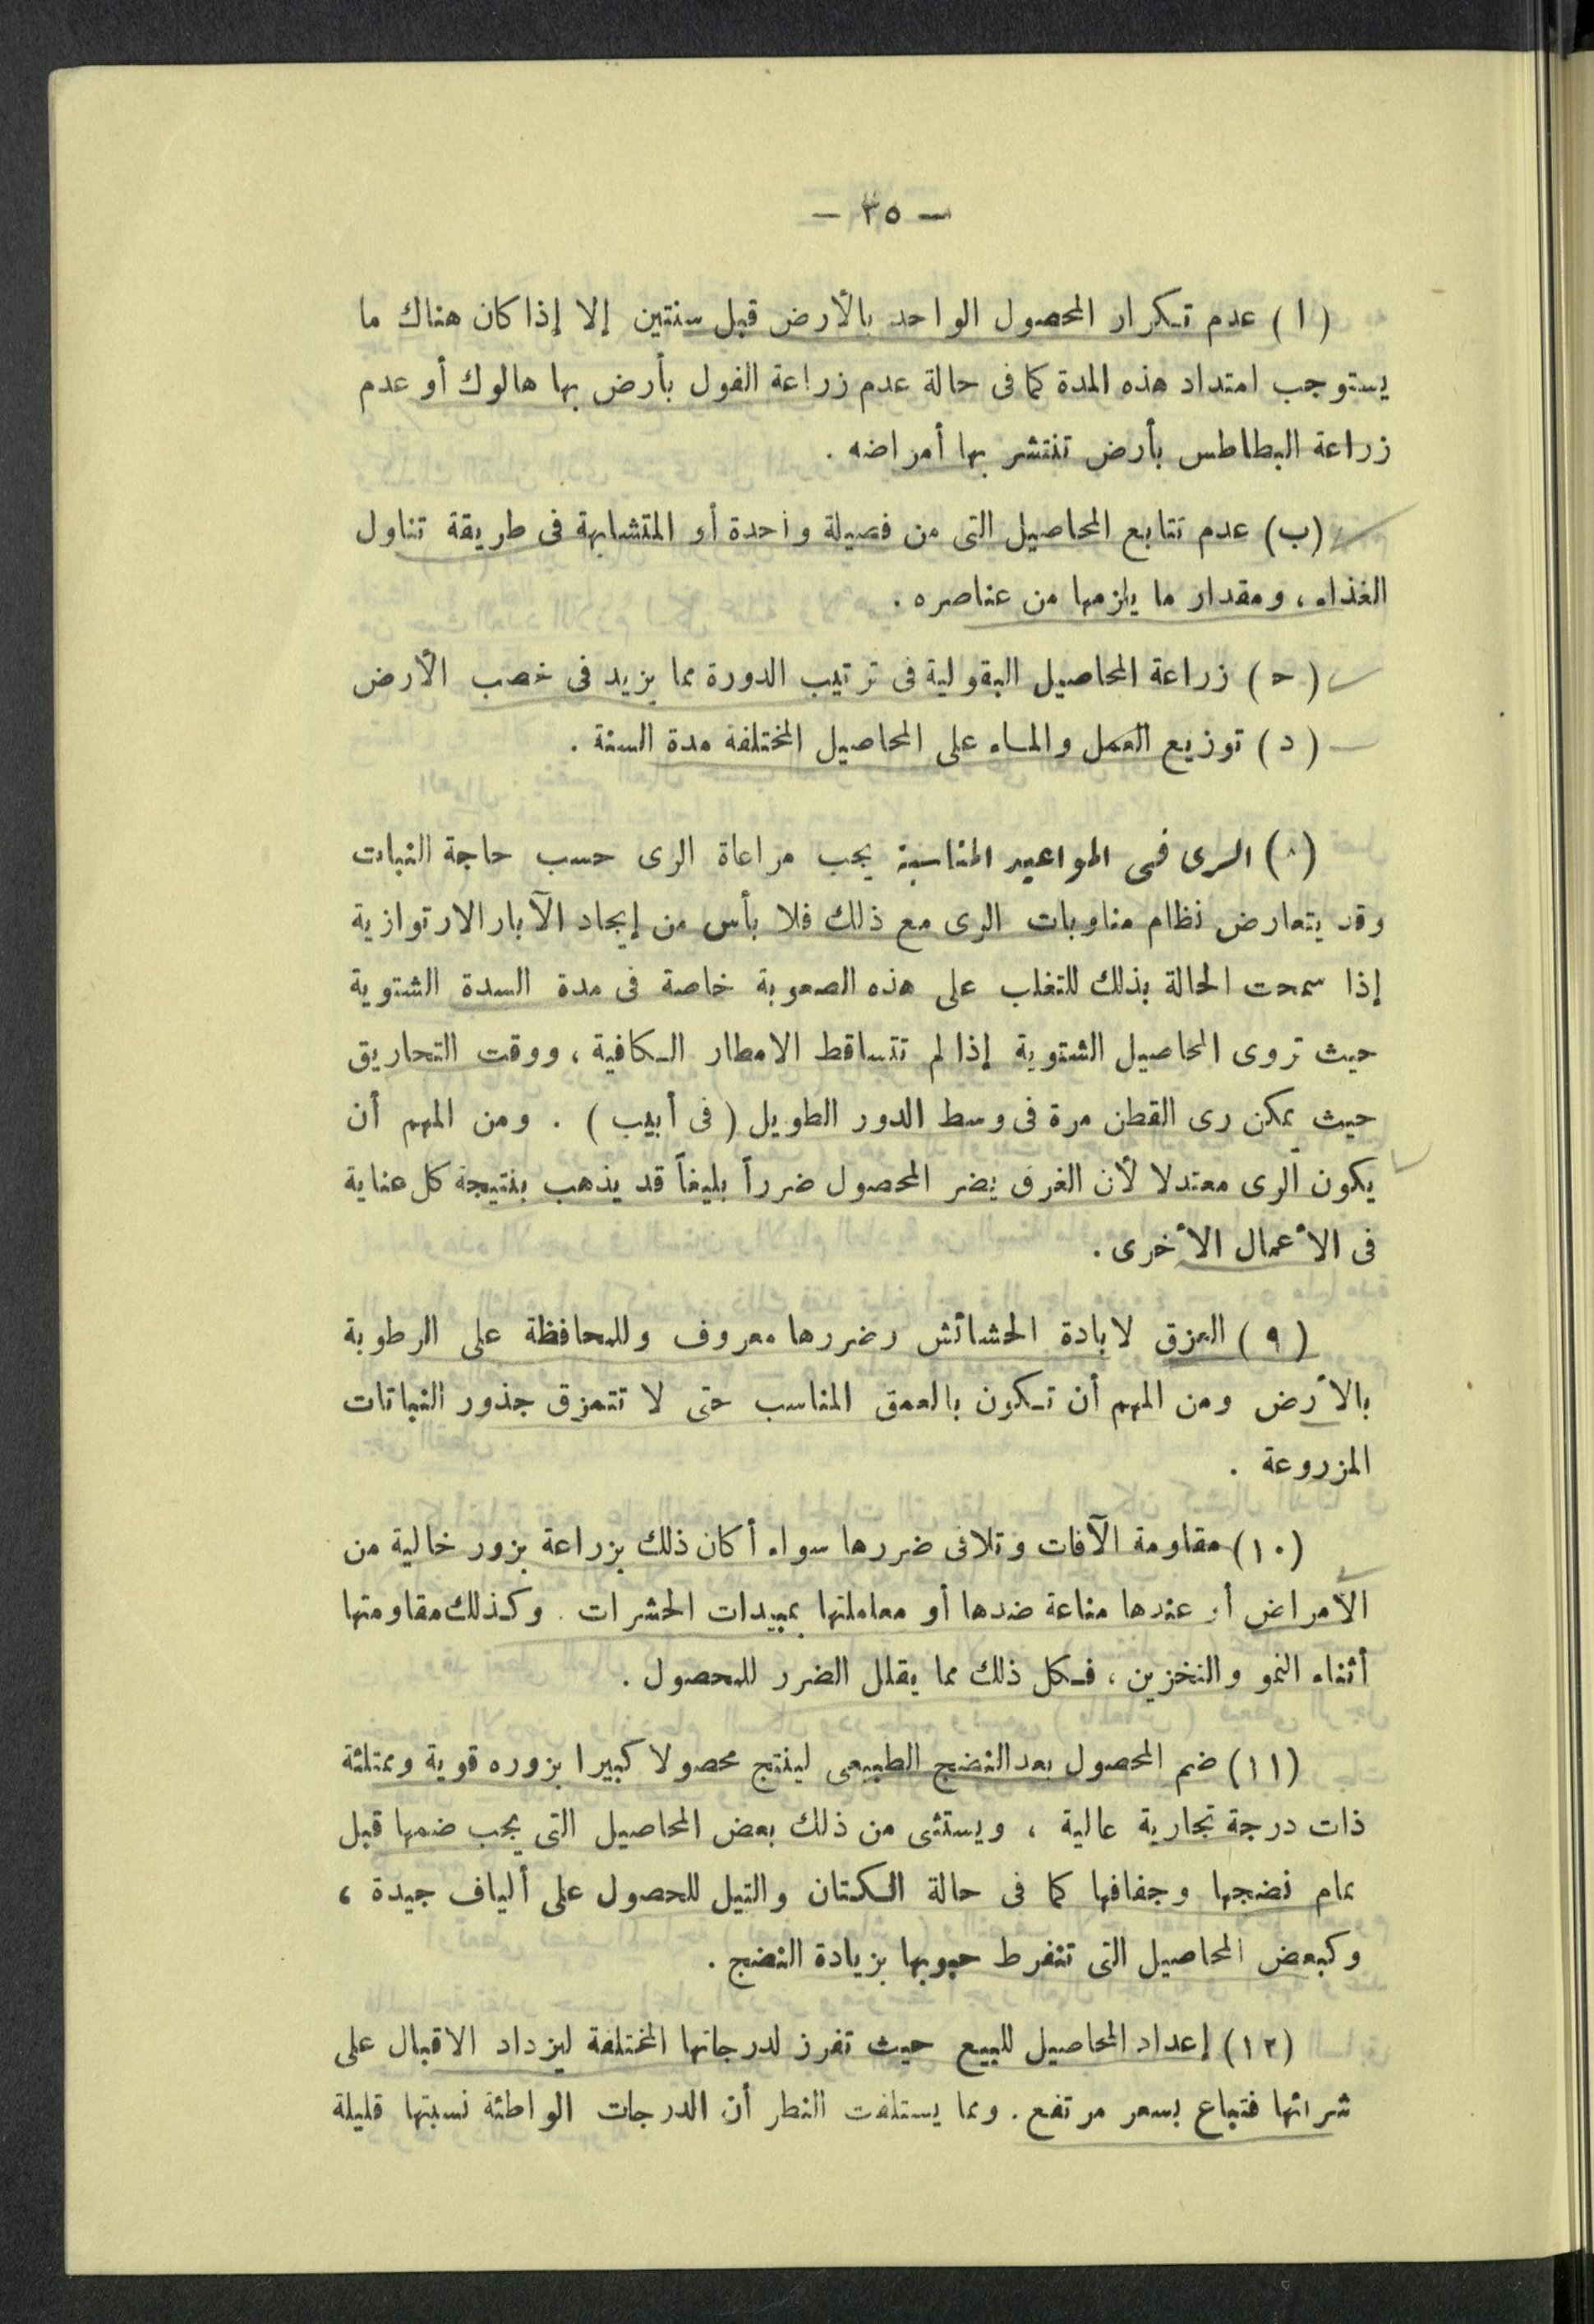 — ٣٥ —
( ا ) عدم تكرار المحصول الواحد بالأرض قبل سنتين إلا إذا كان هناك ما
يستوجب امتداد هذه المدة كما فى حالة عدم زراعة الفول بأرض بها هالوك أو عدم
زراعة البطاطس بأرض تنتشر بها أمراضه .
(ب) عدم تتابع المحاصيل التى من فصيلة واحدة أو المتشابهة فى طريقة تناول
الغذاء ، ومقدار ما يلزمها من عناصره .
( ح ) زراعة المحاصيل البقولية فى ترتيب الدورة مما يزيد فى خصب الأرض
( د ) توزيع العمل والماء على المحاصيل المختلفة مدة السنة .
(٨) الرى فى المواعيد المناسبة يجب مراعاة الرى حسب حاجة النبات
وقد يتعارض نظام مناوبات الرى مع ذلك فلا بأس من إيجاد الآبار الارتوازية
إذا سمحت الحالة بذلك للتغلب على هذه الصعوبة خاصة فى مدة السدة الشتوية
حيث تروى المحاصيل الشتوية إذا لم تتساقط الامطار الكافية ، ووقت التحاريق
حيث يمكن رى القطن مرة فى وسط الدور الطويل ( فى أبيب ) . ومن المهم أن
يكون الرى معتدلا لأن الغرق يضر المحصول ضرراً بليغاً قد يذهب بنتيجة كل عناية
فى الأعمال الأخرى .
( ٩ ) العزق لابادة الحشائش وضررها معروف وللمحافظة على الرطوبة
بالأرض ومن المهم أن تكون بالعمق المناسب حتى لا تتمزق جذور النباتات
المزروعة .
(١٠) مقاومة الآفات وتلافى ضررها سواء أكان ذلك بزراعة بزور خالية من
الأمراض أو عندها مناعة ضدها أو معاملتها بمبيدات الحشرات . وكذلك مقاومتها
أثناء النمو والتخزين ، فكل ذلك مما يقلل الضرر للمحصول .
(١١) ضم المحصول بعد النضج الطبيعى لينتج محصولا كبيرا بزوره قوية وممتلئة
ذات درجة تجارية عالية ، ويستثنى من ذلك بعض المحاصيل التى يجب ضمها قبل
تمام نضجها وجفافها كما فى حالة الكتان والتيل للحصول على ألياف جيدة ،
وكبعض المحاصيل التى تنفرط حبوبها بزيادة النضج .
(١٢) إعداد المحاصيل للبيع حيث تفرز لدرجاتها المختلفة ليزداد الاقبال على
شرائها فتباع بسعر مرتفع . ومما يستلفت النظر أن الدرجات الواطئة نسبتها قليلة